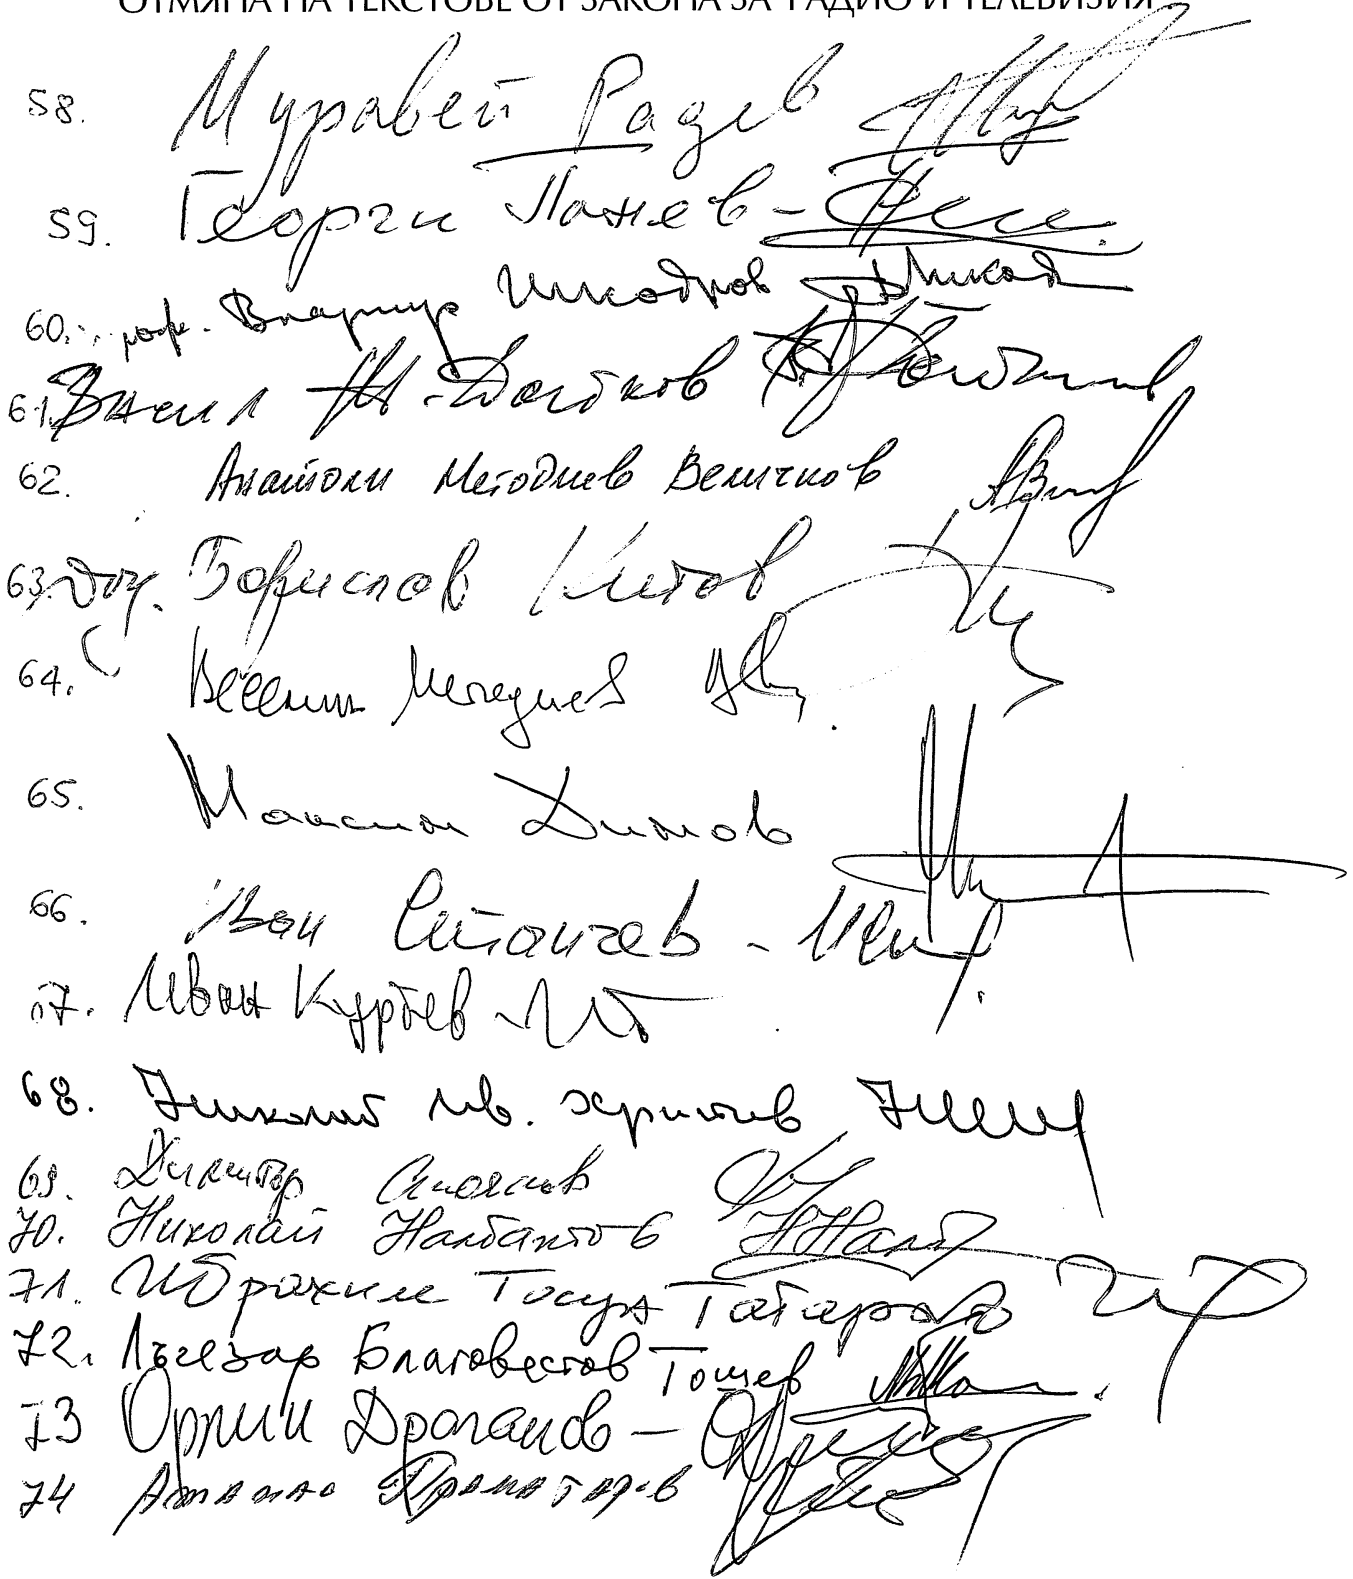 ОТМЯНА НА ТЕКСТОВЕ ОТ ЗАКОНА ЗА РАДИО И ТЕЛЕВИЗИЯ
58. Муравей Радев
59. Георги Панев -
60. проф. Владимир Шкодров
61. Васил М. Гойков
62. Анатоли Методиев Величков
63. Доц. Борислав Китов
64. Веселин Методиев
65. Максим Димов
66. Иван Станчев -
67. Иван Куртев -
68. Николай Ив. Христов
69. Димитър Стоянов
70. Николай Налбантов
71. Ибрахим Тосун Татарлъ
72. Лъчезар Благовестов Тошев
73 Орлин Драганов -
74 Атанас Драматаров